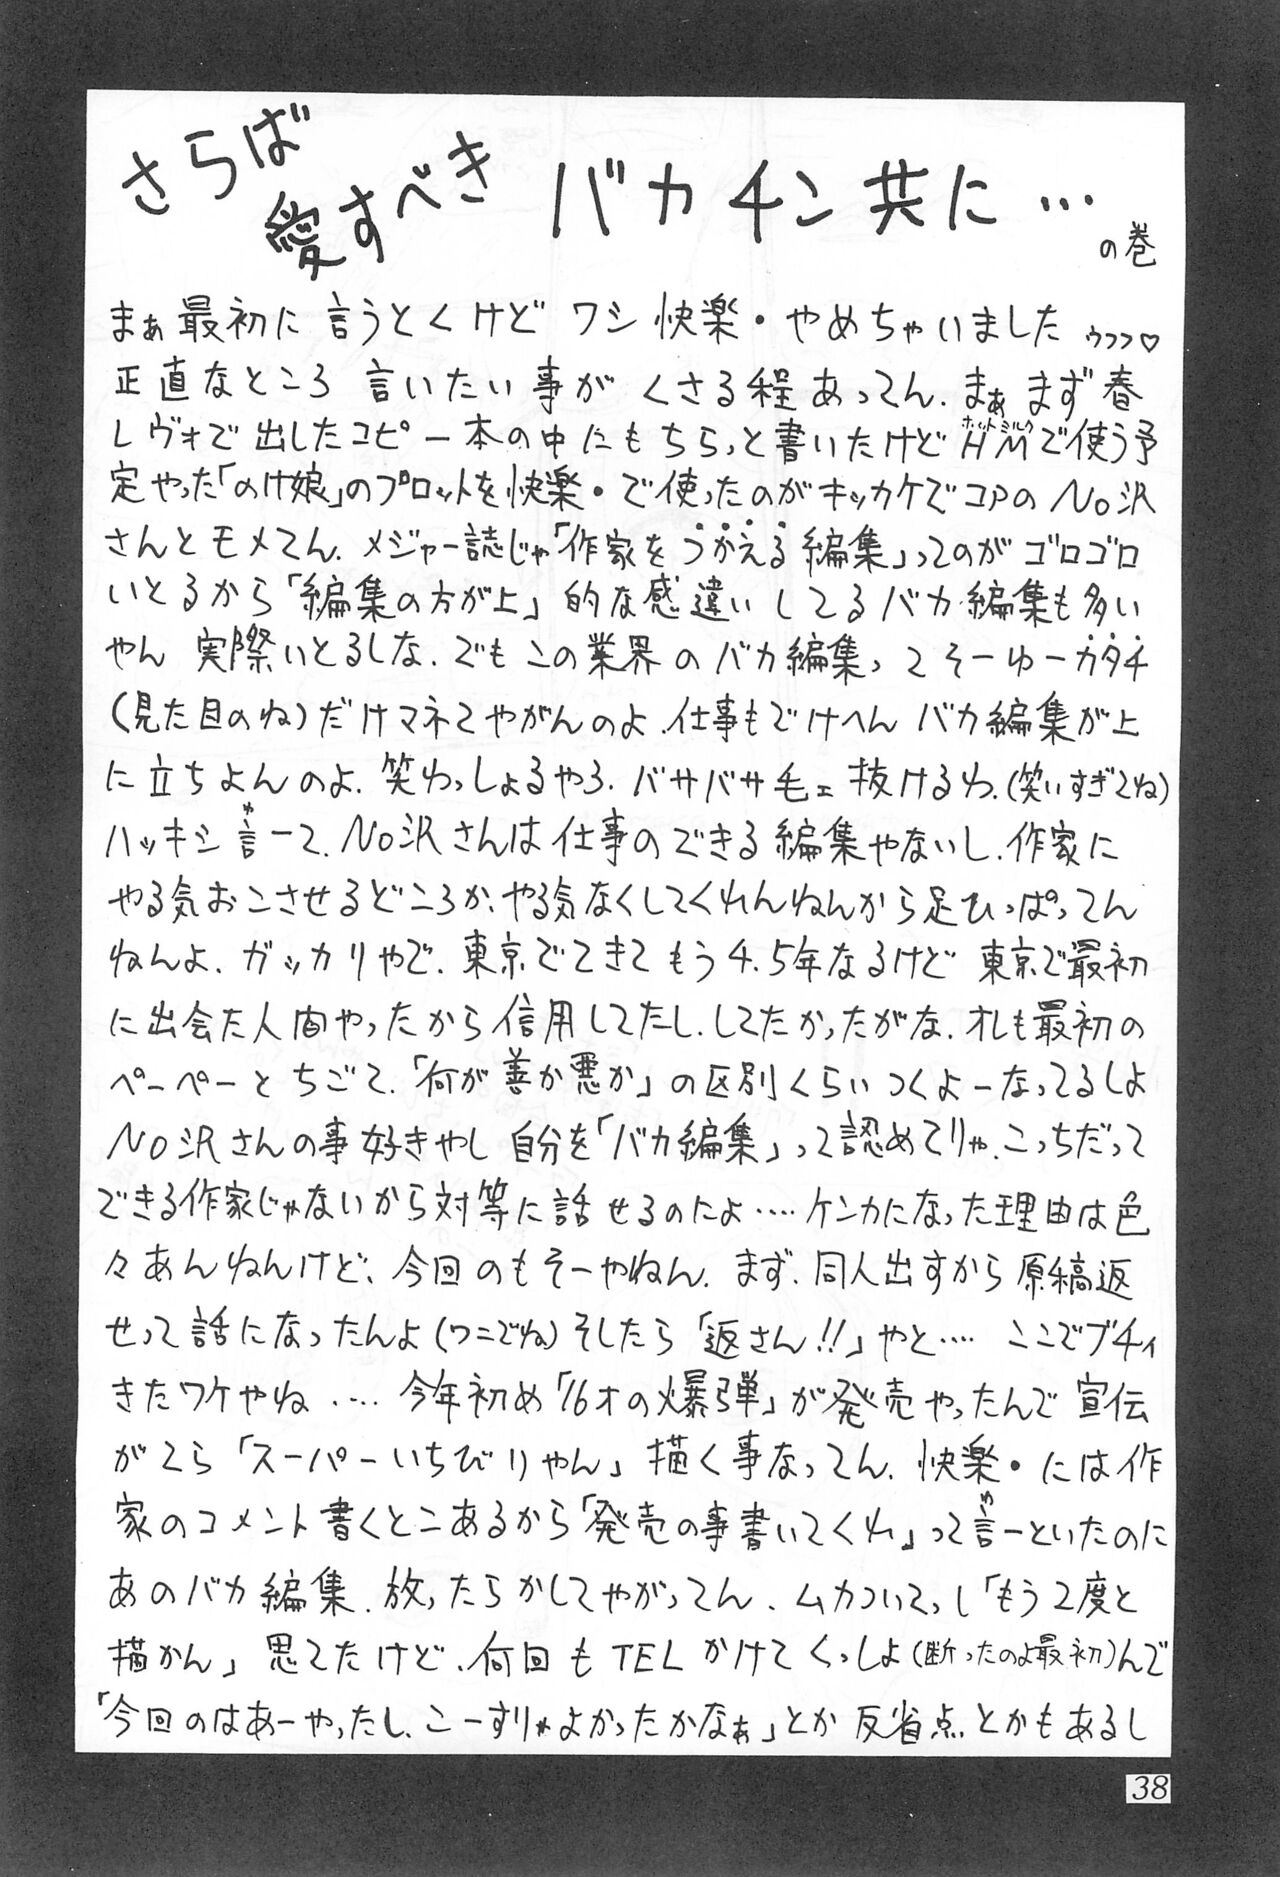 さらば
愛すべき バカチン共に…
の巻
まぁ最初に言うとくけど ワシ 快楽・やめちゃいました ゥフフ♡
正直なところ 言いたい事が くさる程あってん. まぁ まず春
レヴォで出したコピー本の中にもちらっと書いたけど HM(ホットミルク)で使う予
定やった「のけ娘」のプロットを快楽・で使ったのがキッカケでコアのNo沢
さんとモメてん. メジャー誌じゃ「作家をうかえる編集」ってのがゴロゴロ
いとるから「編集の方が上」的な感違いしてるバカ編集も多い
やん 実際いとるしな. でもこの業界のバカ編集ってそーゆーカタチ
(見た目のね)だけマネてやがんのよ. 仕事もでけへん バカ編集が上
に立ちよんのよ. 笑わっしょるやろ. バサバサ毛ェ抜けるわ.(笑いすぎてね)
ハッキシ言(ゆ)ーて. No沢さんは仕事のできる編集やないし. 作家に
やる気おこさせるどころか、やる気なくしてくれんねんから足ひっぱってん
ねんよ. ガッカリやで. 東京でてきてもう4.5年なるけど 東京で最初
に出会た人間やったから信用してたし. してたかったがな. オレも最初の
ペーペーとちごて. 「何が善か悪か」の区別くらいつくよーなってるしよ
No沢さんの事好きやし 自分を「バカ編集」って認めてりゃ. こっちだって
できる作家じゃないから対等に話せるのによ‥‥ケンカになった理由は色
々あんねんけど、今回のもそーやねん. まず. 同人出すから原稿返
せって話になったんよ(ワニでね)そしたら「返さん!!」やと‥‥ ここでブチィ
きたワケやね‥‥ 今年初め「16才の爆弾」が発売やったんで宣伝
がてら「スーパーいちびりやん」描く事なってん. 快楽・には作
家のコメント書くとこあるから「発売の事書いてくれ」って言(ゆ)ーといたのに
あのバカ編集. 放ったらかしてやがってん. ムカついてっし「もう2度と
描かん」思てたけど、何回もTELかけてくっしよ(断ったのよ最初)んで
「今回のはあーやったし、こーすりゃよかったかなぁ」とか 反省点とかもあるし
38